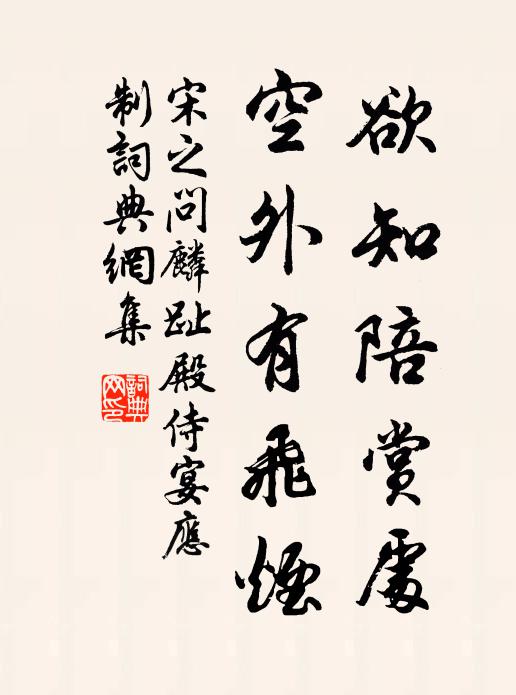 欲知陪賞處
空外有飛煙
宋之問麟趾殿侍宴應
制詞典網集
詞典网印